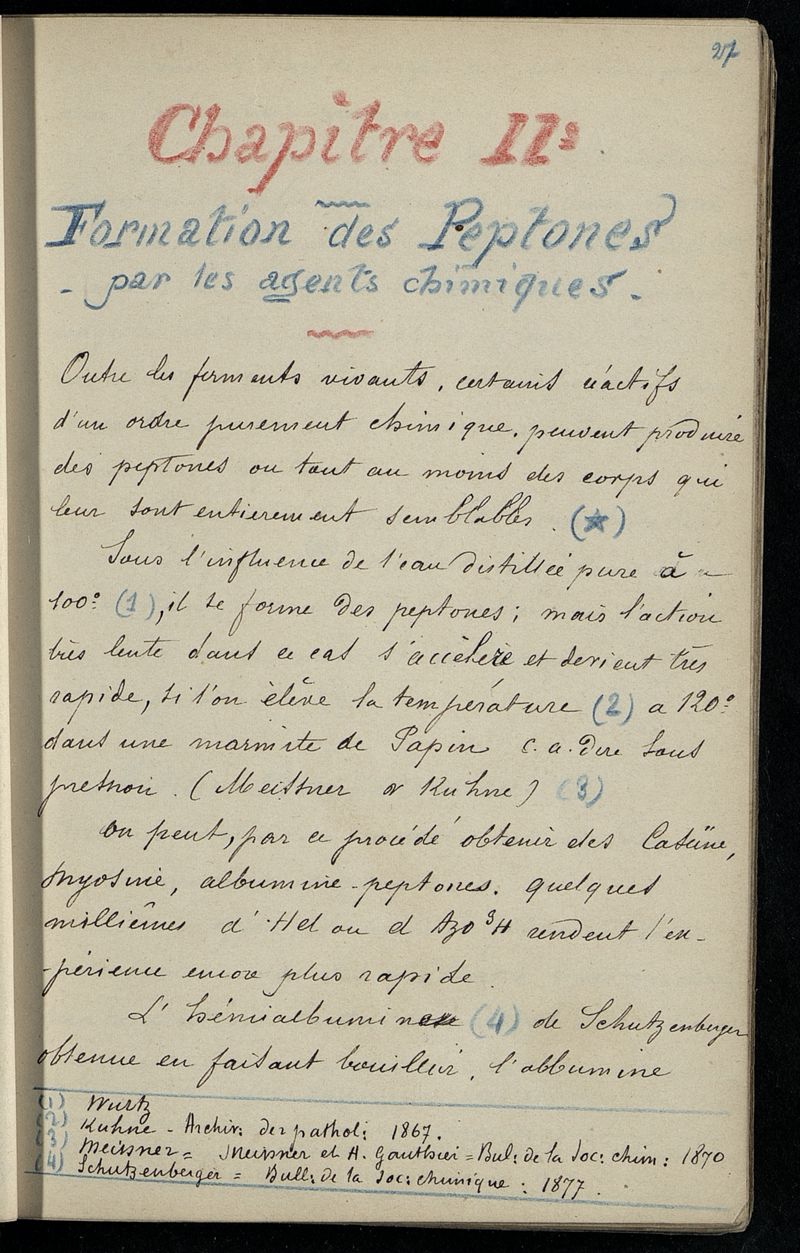 27
Chapitre IIe
Formation des Peptones
- par les agents chimiques -
Outre les ferments vivants, certains réactifs
d'un ordre purement chimique, peuvent produire
des peptones ou tout au moins des corps qui
leur sont entierement semblables. (★)
Sous l'influence de l'eau distillée pure à
100° (1), il se forme des peptones; mais l'action
très lente dans ce cas s'accélère et devient très
rapide, si l'on élève la température (2) a 120°
dans une marmite de Papin c. a. dire sous
pression. (Meissner & Kuhne) (3)
On peut, par ce procédé obtenir des Caséïne,
myosine, albumine-peptones. Quelques
millièmes d'Hcl ou d'Azo3H rendent l'ex-
-périence encore plus rapide.
L'hémialbumine (4) de Schutzenberger
obtenue en faisant bouillir, l'albumine
(1) Wurtz
(2) Kuhne - Archiv: der pathol: 1867.
(3) Meissner = Meissner et A. Gauthier = Bul: de la Soc: chim: 1870
(4) Schutzenberger = Bull: de la Soc: chimique: 1877.